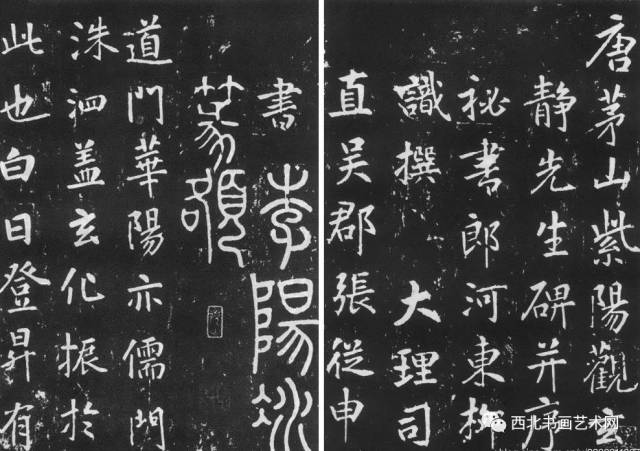 唐茅山紫陽觀玄
靜先生碑并序
祕書郎河東柳
識撰 大理司
直吴郡張從申
書 李陽冰
篆額
道門華陽亦儒門
洙泗盖玄化振於
此也白日登昇有
西北书画艺术网